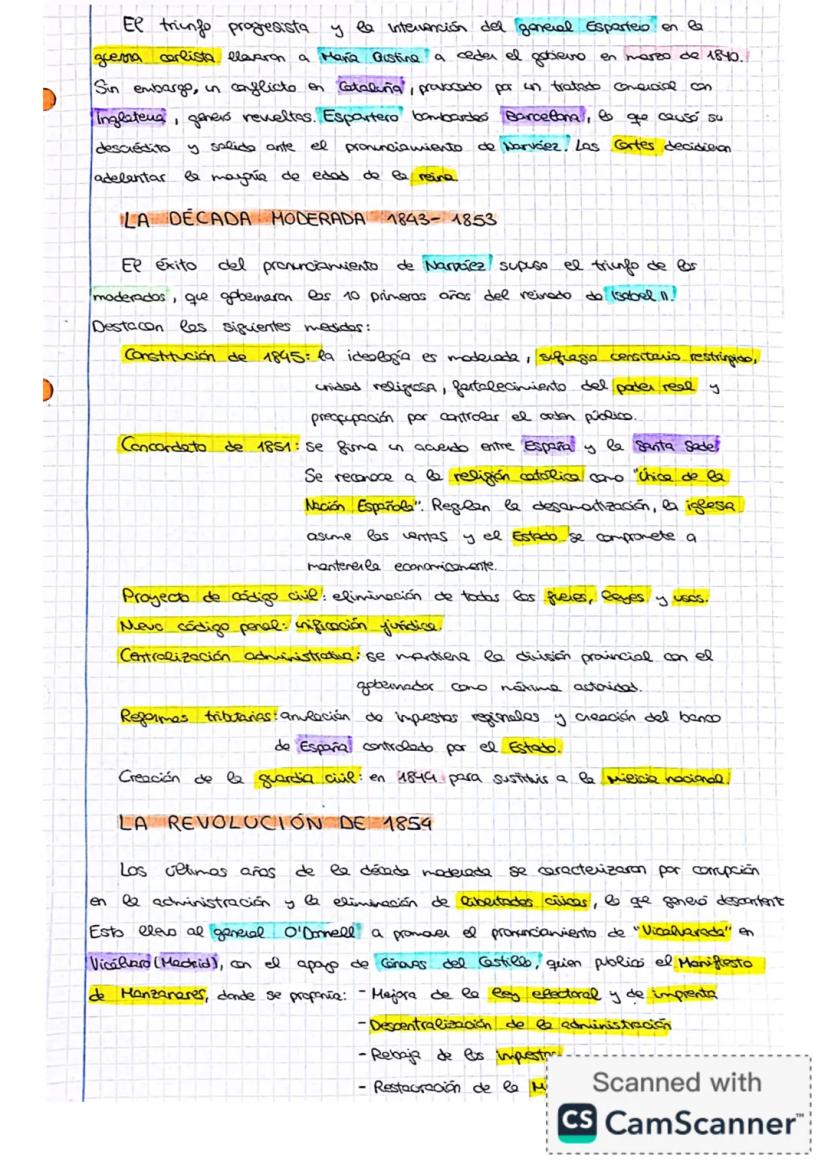 El triunfo progresista y la intervención del general Espartero en la
guerra carlista llevaron a María Cristina a ceder el gobierno en marzo de 1840.
Sin embargo, un conflicto en Cataluña, provocado por un tratado comercial con
Inglaterra, generó revueltas. Espartero bombardeó Barcelona, lo que causó su
descrédito y salida ante el pronunciamiento de Narváez. Las Cortes decidieron
adelantar la mayoría de edad de la reina
LA DÉCADA MODERADA 1843-1853
El éxito del pronunciamiento de Narváez supuso el triunfo de los
moderados, que gobernaron los 10 primeros años del reinado de Isabel II.
Destacan las siguientes medidas:
Constitución de 1845: la ideología es moderada, sufragio censitario restringido,
unidad religiosa, fortalecimiento del poder real y
preocupación por controlar el orden público.
Concordato de 1851: se firma un acuerdo entre España y la Santa Sede
Se reconoce a la religión católica como "Única de la
Nación Española". Regulan la desamortización, la iglesia
asume las ventas y el Estado se compromete a
mantenerla económicamente.
Proyecto de código civil: eliminación de todos los fueros, leyes y usos.
Nuevo código penal: unificación jurídica.
Centralización administrativa: se mantiene la división provincial con el
gobernador como máxima autoridad.
Reformas tributarias: anulación de impuestos regionales y creación del banco
de España controlado por el Estado.
Creación de la guardia civil: en 1844 para sustituir a la milicia nacional.
LA REVOLUCIÓN DE 1854
Los últimos años de la década moderada se caracterizaron por corrupción
en la administración y la eliminación de libertades cívicas, lo que generó descontent
Esto llevo al general O'Donnell a promover el pronunciamiento de "Vicalvarada" en
Vicálvaro (Madrid), con el apoyo de Cánovas del Castillo, quien publicó el Manifiesto
de Manzanares, donde se proponía: - Mejora de la ley electoral y de imprenta
- Descentralización de la administración
- Rebaja de los impuestos
- Restauración de la M
Scanned with
CS CamScanner™